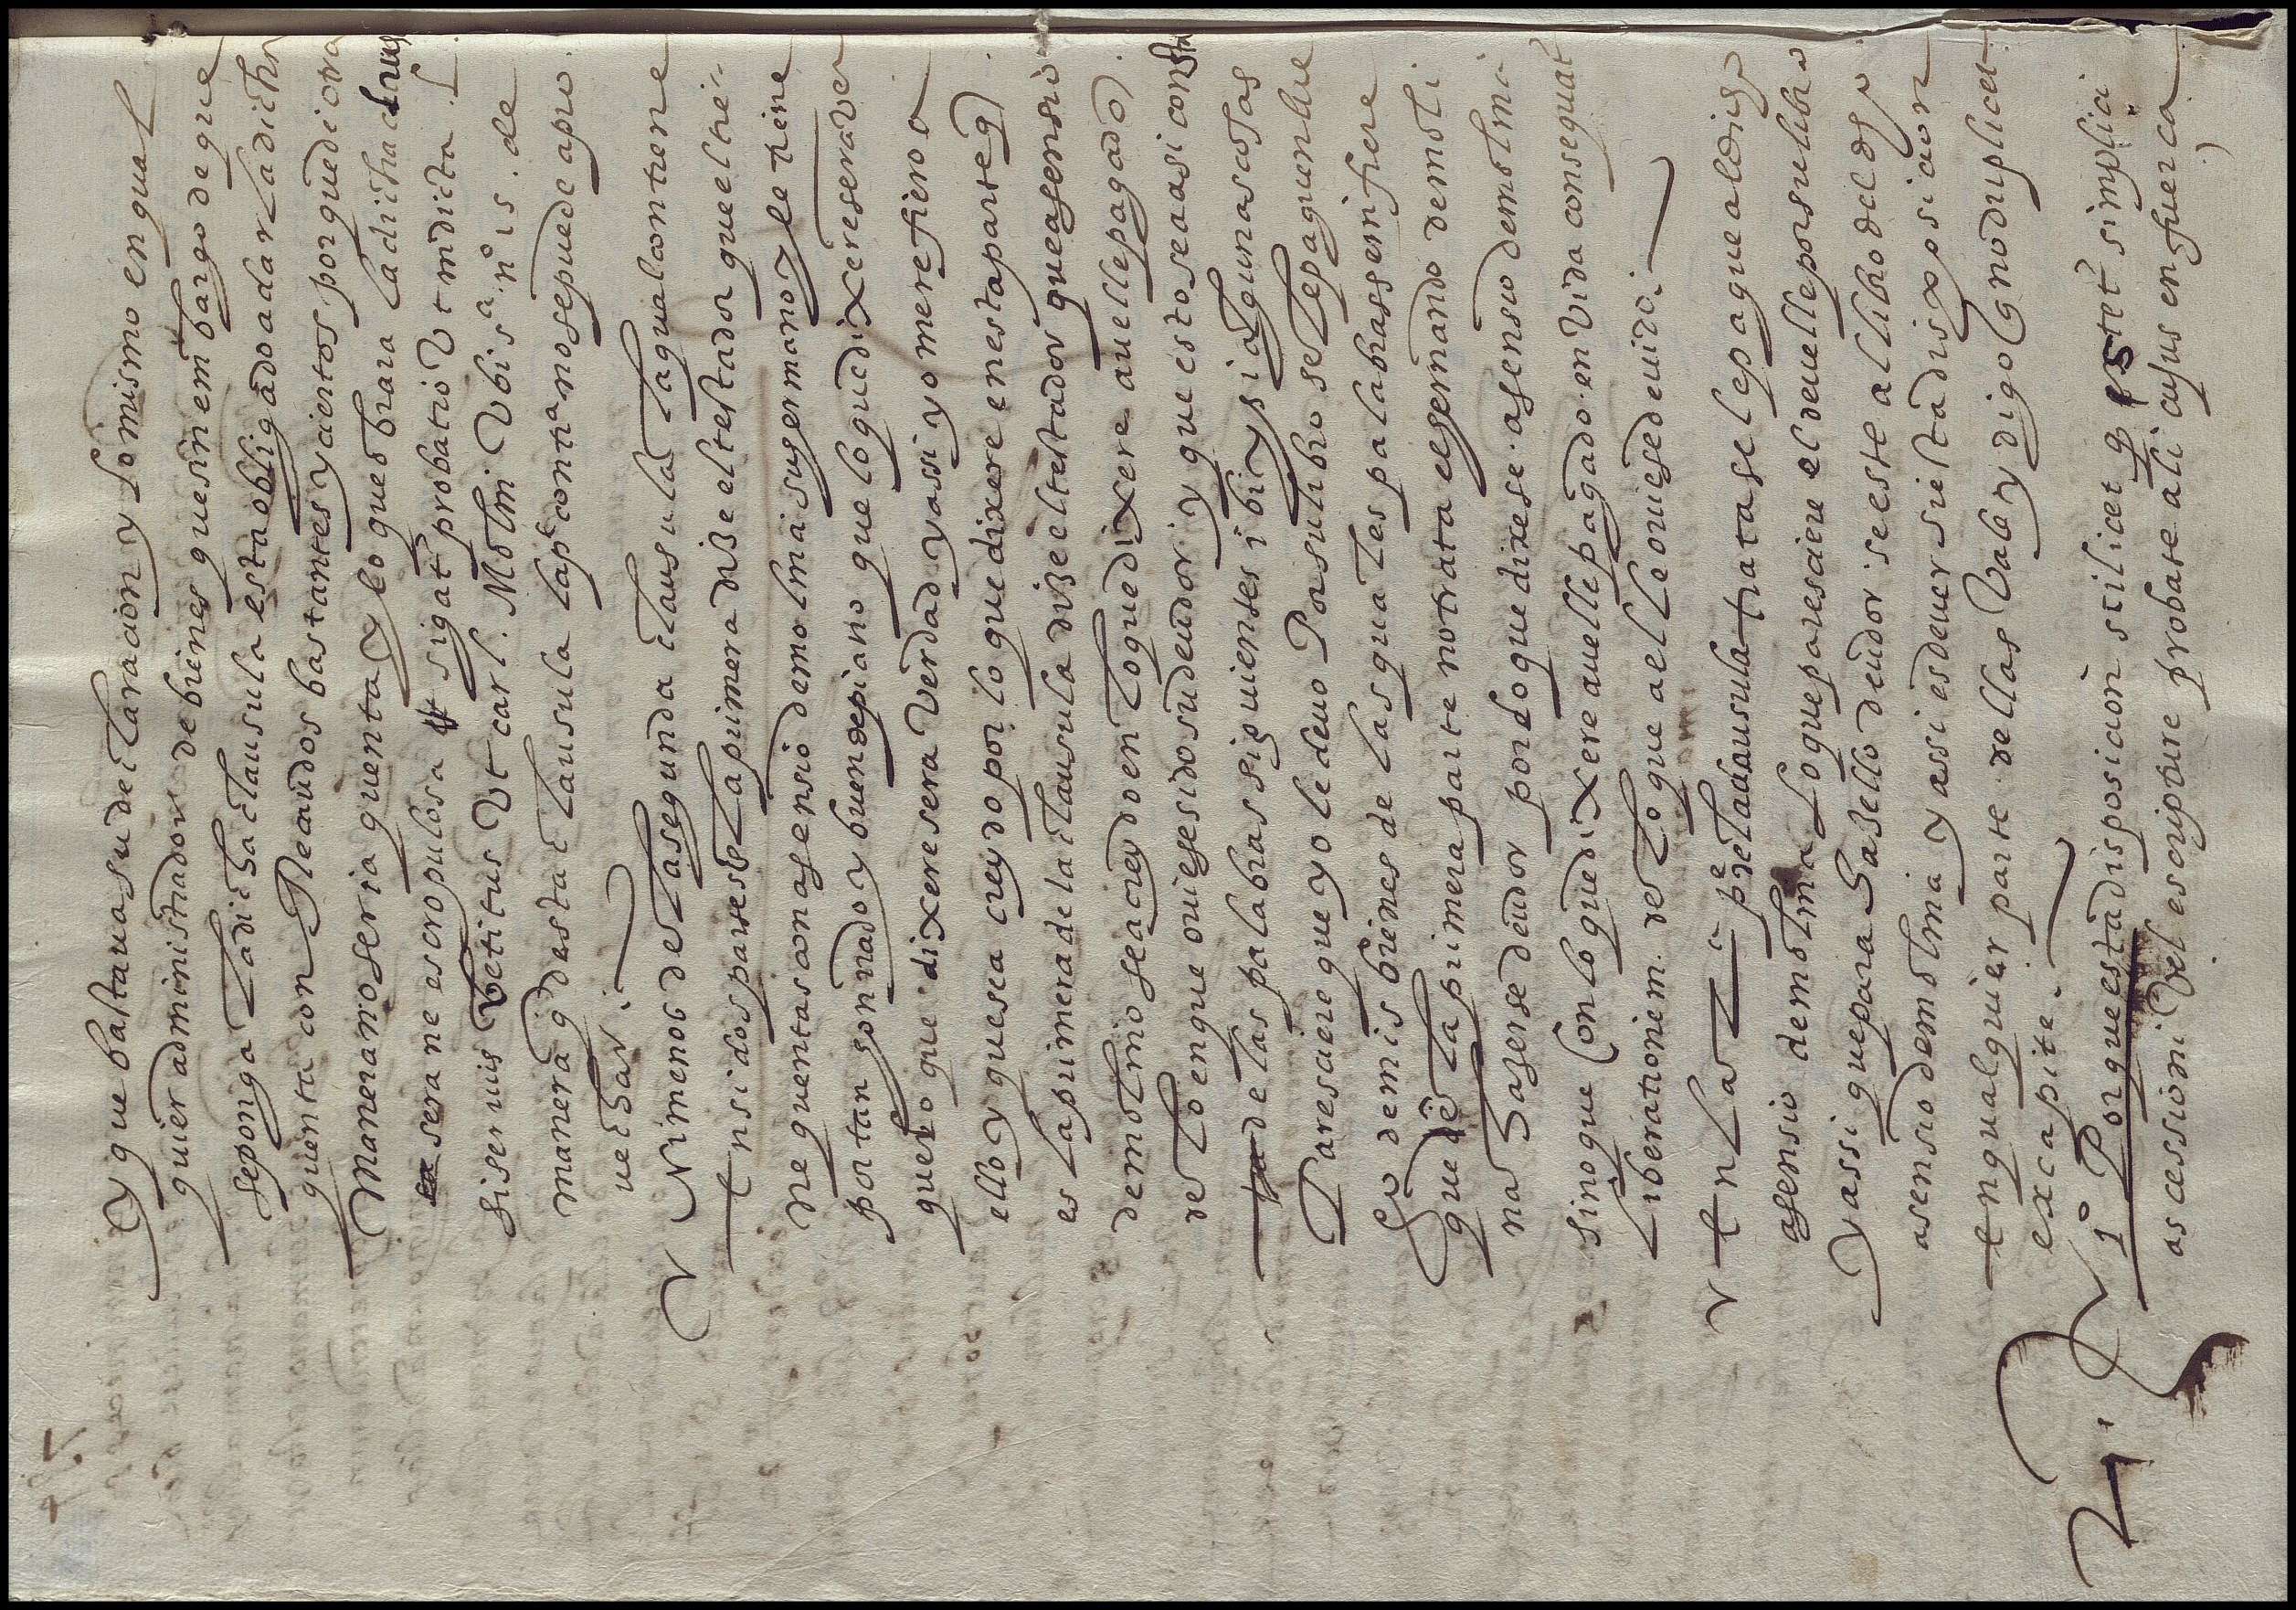 y que bastava su declaracion y lo mismo en qual
quier administrador de bienes que sin embargo de que
se ponga la dicha clausula esta obligado a dar la dicha
quenta con Recaudos bastantes y ciertos porque de otra
manera no seria quenta y lo que obrara la dicha claus
sera ne escropulosa sigat probatio Ut in dicta l
si seruus vetitus Ut carl. Molin. Ubi sª. nº 15. de
manera q desta clausula la pte contrª no se puede apro
uechar.
Ni menos de la segunda clausula la qual contiene
En si dos partes la primera dize el testador que el tie
ne quentas con asensio de molina su germano y le tiene
por tan honrrado y buen depiano que lo que dixere sera ver
quero que dixere sera verdad y assi yo me refiero a
ello y que sea creydo por lo que dixere en esta parte q
es la primera de la clausula dize el testador que asensio
de molina sea creydo en lo que dixere auelle pagado
de lo en que ouiese sido su deudor y que esto sea asi consta
de las palabras siguientes ibi y si algunas cosas
Paresciere que yo le deuo Por su libro se le paguen lue
go de mis bienes de las quales palabras se infiere
que en la primera parte no trata el germano de moli
na hazerse deudor por lo que dixese asensio de molina
sino que con lo que dixere auelle pagado en vida consequat
liberationem de lo que a el le ouiese deuido.
En la 2ª pte de la clausula trata se le pague al dicho
asensio de molina lo que paresciere el deuelle por su libro
y assi que para hazello deudor se este al libro del dho
asensio de molina y assi es deuer si esta disposicion
En qualquier parte dellas vale y digo q no duplicet
ex capite.
1º Porque esta disposicion scilicet q stet simplici
as cessioni vel escripture probate alicujus en fuerca